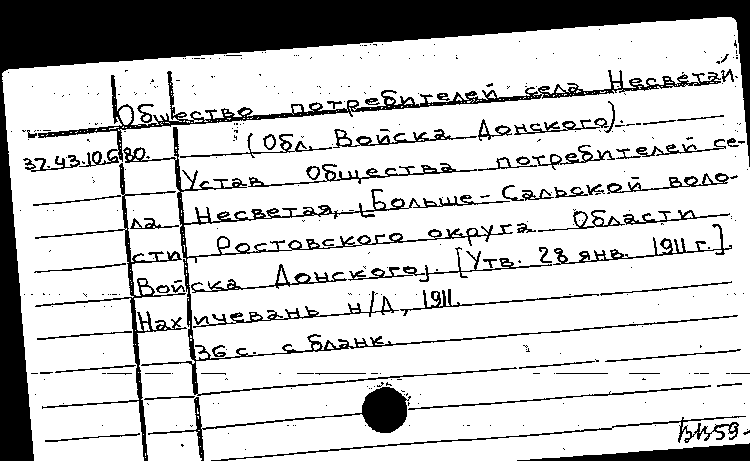 Общество потребителей села Несветай
(Обл. Войска Донского).
37.43.10.6.80.
Устав Общества потребителей се-
ла Несветая, [Больше-Сальской воло-
сти, Ростовского округа Области
Войска Донского]. [Утв. 28 янв. 1911 г.].
Нахичевань н/Д, 1911.
36 с. с бланк.